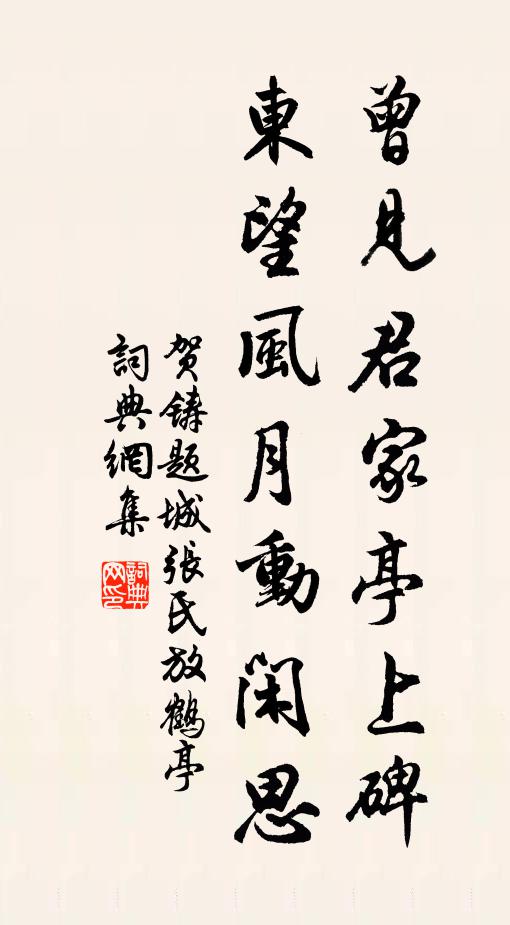 曾見君家亭上碑
東望風月動閑思
贺鑄题城張民放鶴亭
詞典網集
詞典网印